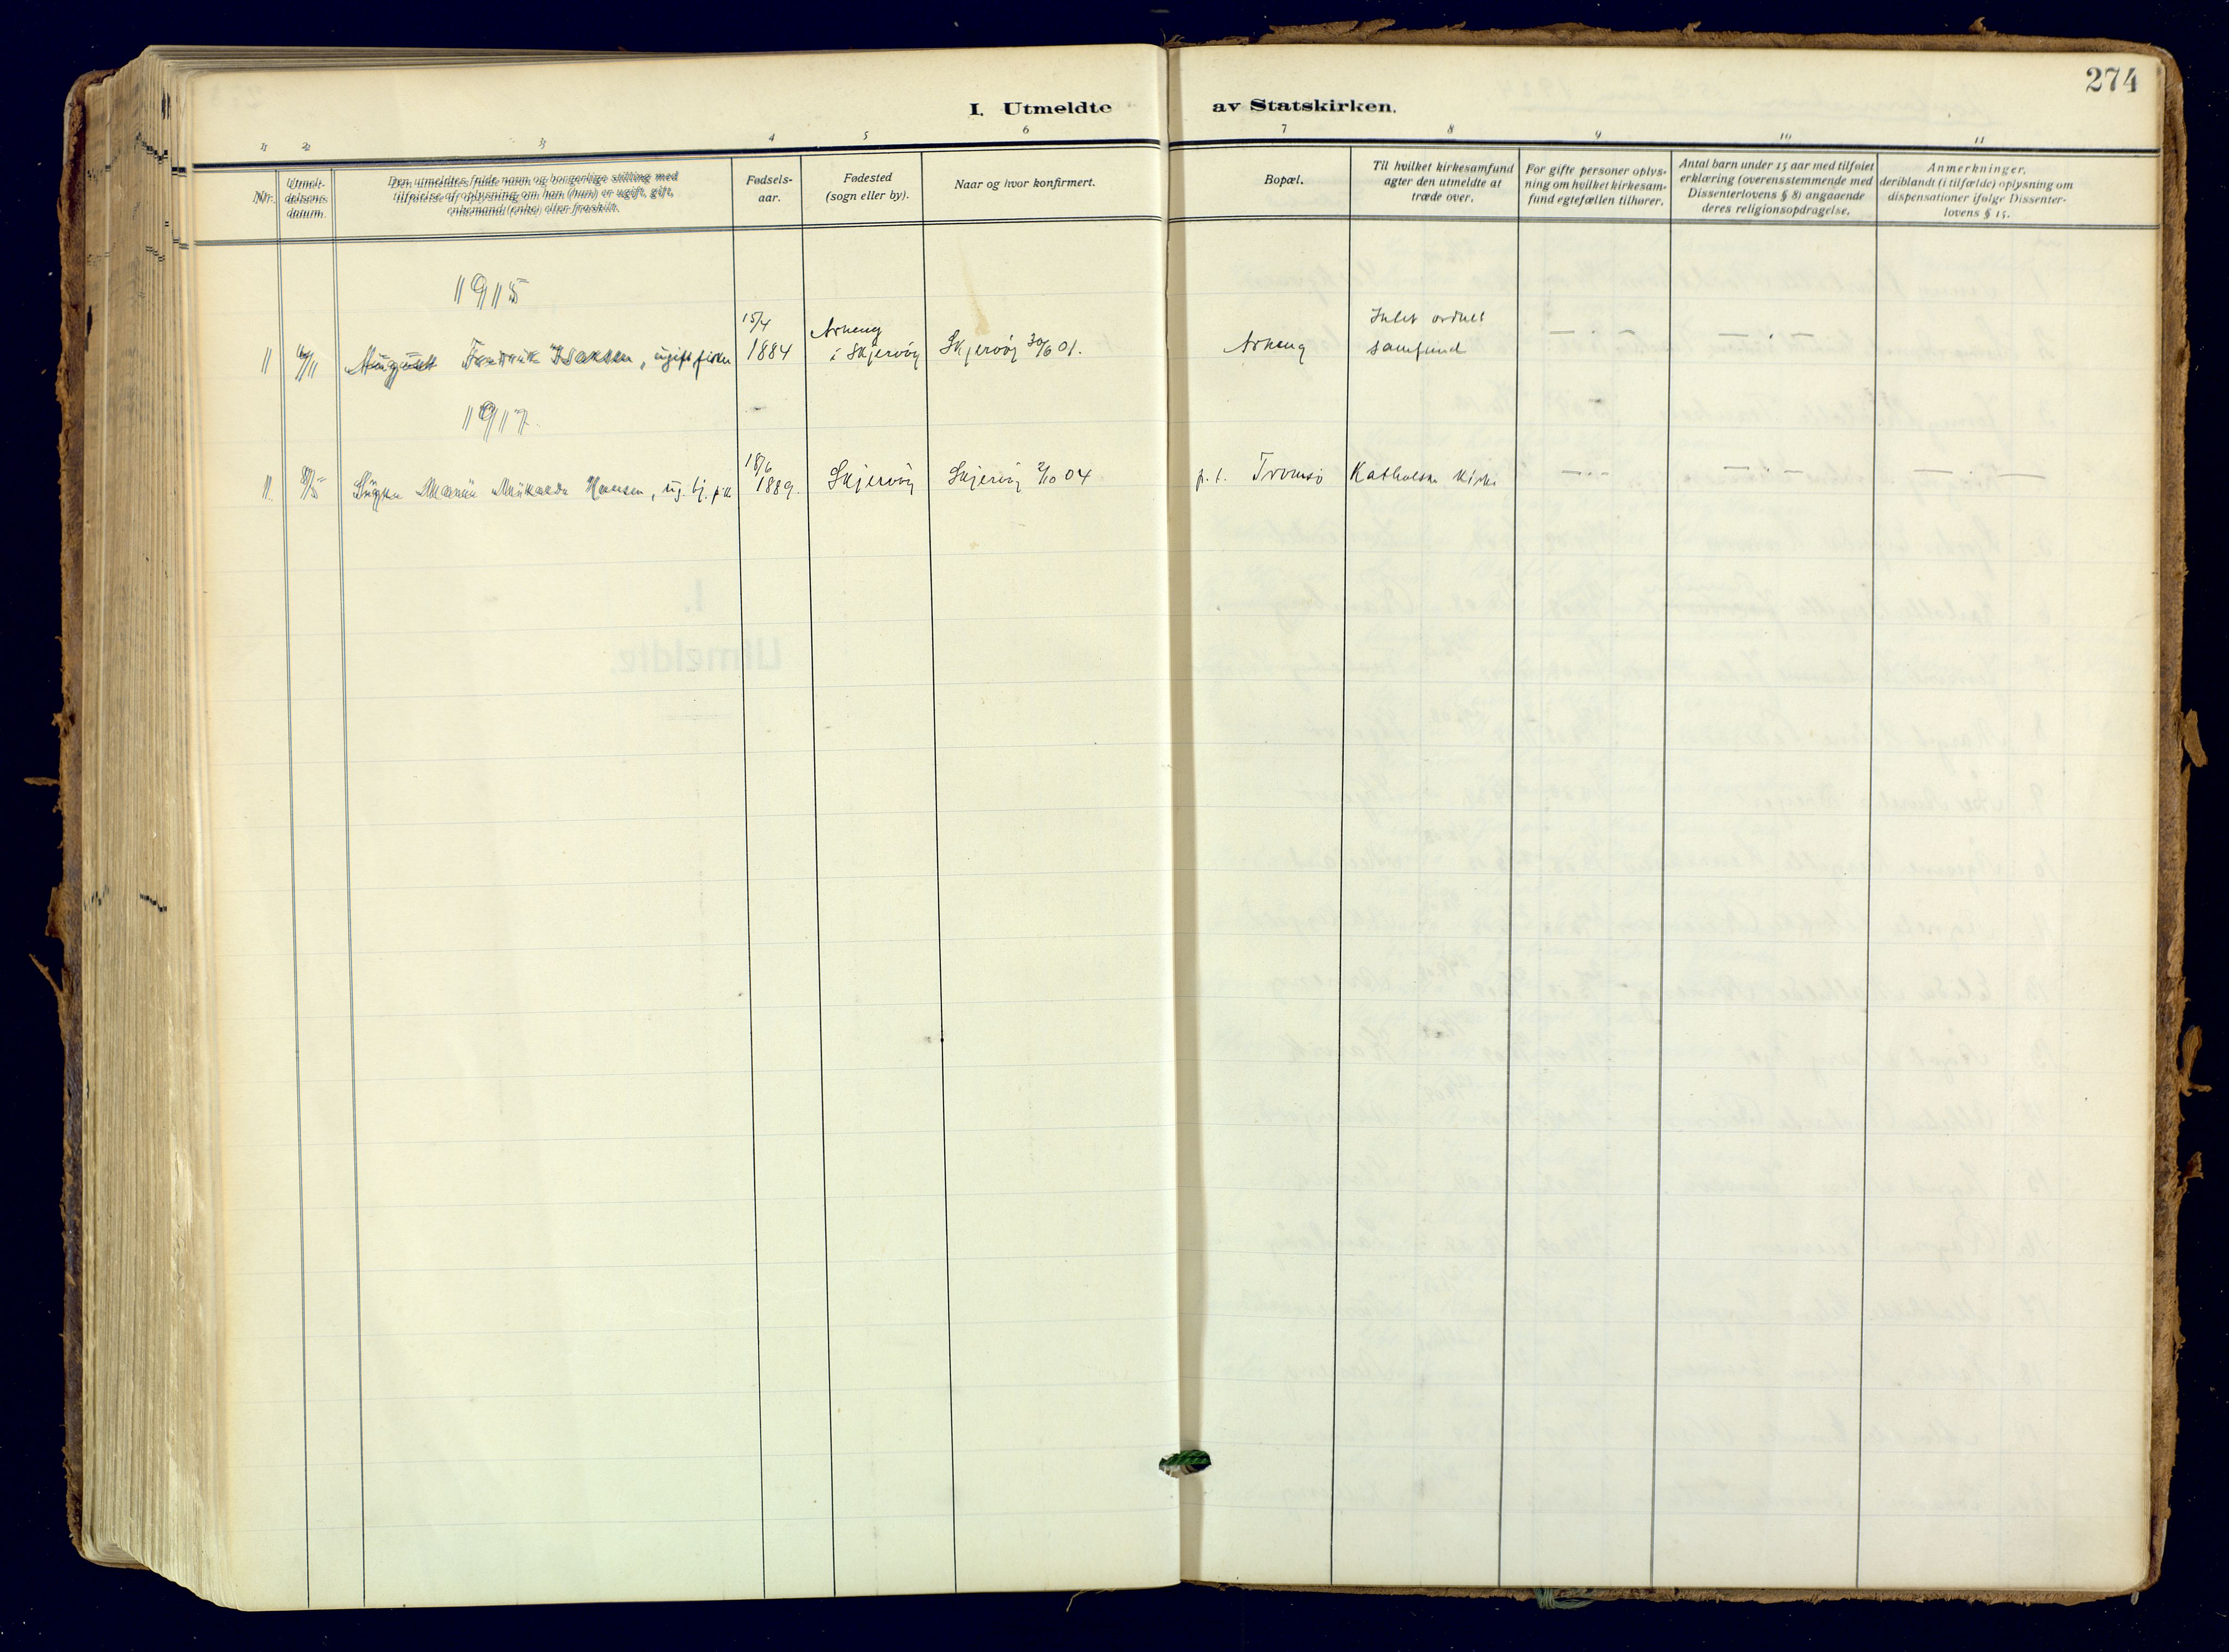 274
I. Utmeldte av Statskirken.
1 2 3 4 5 6 7 8 9 10 11
Nr.
Utmel-
delsens
datum.
Den utmeldtes fulde navn og borgerlige stilling med
tilføielse af oplysning om han (hun) er ugift, gift,
enkemand (enke) eller fraskilt.
Fødsels-
aar.
Fødested
(sogn eller by).
Naar og hvor konfirmert.
Bopæl.
Til hvilket kirkesamfund
agter den utmeldte at
træde over.
For gifte personer oplys-
ning om hvilket kirkesam-
fund egtefællen tilhører.
Antal barn under 15 aar med tilføiet
erklæring (overensstemmende med
Dissenterlovens § 8) angaaende
deres religionsopdragelse.
Anmerkninger,
deriblandt (i tilfælde) oplysning om
dispensationer ifølge Dissenter-
lovens § 15.
1915
1 August Fredrik Isaksen, ugift fisker 15/4 1884 Arneng i Skjervöy Skjervöy 30/6 01. Arneng Intet ordnet samfund — " — — " —
1917
1 Marie Mikalda Hansen, ug. tj. p.k. 18/6 1889. Skjervöy Skjervöy 2/10 04 p. t. Tromsö Katholske Kirke — " — — " — — " —
I.
Utmeldte.